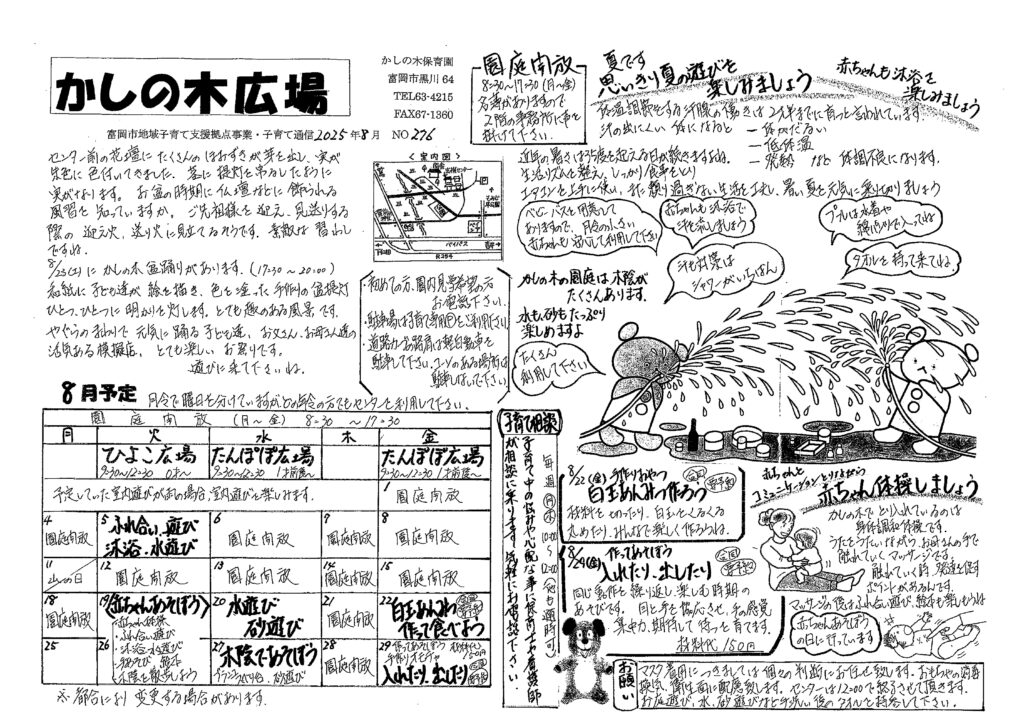 かしの木広場
富岡市地域子育て支援拠点事業・子育て通信 2025年8月 NO 276
かしの木保育園
富岡市黒川64
TEL63-4215
FAX67-1360
センター前の花壇にたくさんのほおずきが芽を出し、実が
朱色に色付いてきました。
実がなります。お盆の時期に仏壇などに飾られる
風習を知っていますか。ご先祖様を迎え、見送りする
際の迎え火、送り火に見立てるそうです。素敵な習わし
ですね。
8/23(土)にかしの木盆踊りがあります。(17:30〜20:00)
和紙に子ども達が絵を描き、色を塗った手作りの盆提灯
ひとつ、ひとつに明かりを灯します。とても趣のある風景です。
やぐらのまわりで元気に踊る子ども達、お父さん、お母さん達の
活気ある模擬店、とても楽しいお祭りです。
遊びに来て下さいね。
<案内図>
バイパス
R254
初めての方、園内見学希望の方
お電話下さい。
駐車場は子育て専用Pをご利用下さい
園庭開放
8:30〜17:30(月〜金)
名簿がありますので
2階の事務所に声を
掛けて下さい。
夏です
思いきり夏の遊びを
楽しみましょう
赤ちゃんも沐浴で
楽しみましょう
体温調節をする汗腺の働きは2才半までに育つと言われています。
汗の出にくい体になると
低体温
発熱 など体調不良になります。
近年の暑さは35度を超える日が続きますよね。
生活リズムを整え、しっかり食事をとり
エアコンを上手に使い、また頼り過ぎない生活を工夫し、暑い夏を元気に乗り切りましょう
ベビーバスを用意して
ありますので、月令の小さい
赤ちゃんも安心して利用して下さい
赤ちゃんも沐浴で
汗を流しましょう
汗も対策は
シャワーがいちばん
プールは水着や
タオルを持って来てね。
かしの木の園庭は木陰が
たくさんあります。
水も砂もたっぷり
楽しめますよ
たくさん
利用して下さい
8月予定 月令で曜日を分けていますがどの年令の方でもセンターを利用して下さい。
園庭開放 (月〜金) 8:30〜17:30
月 火 水 木 金
ひよこ広場
9:30〜12:30 0才〜
たんぽぽ広場
9:30〜12:30 1才前後〜
たんぽぽ広場
9:30〜12:30 1才前後〜
予定していた室内遊びが雨の場合、室内遊びを楽しみます。
1 園庭開放
4 園庭開放
5 ふれ合い遊び
沐浴・水遊び
6 園庭開放
7 園庭開放
8 園庭開放
11 山の日
12 園庭開放
13 園庭開放
14 園庭開放
15 園庭開放
18 園庭開放
19 赤ちゃんあそぼう
・赤ちゃん体操
・ふれ合い遊び
・沐浴・水遊び
20 水遊び
砂遊び
21 園庭開放
22 白玉あんみつ
作って食べよう
25
26
27 木陰であそぼう
28 園庭開放
29 作ってあそぼう
手作りおもちゃ
入れたり、出したり
※都合により変更する場合があります。
子育て相談
毎週 月 木
10:00〜12:00
子育て中の悩みや心配な事に保育士や看護師
が相談に乗ります。気軽にお電話下さい。
8/22(金) 手作りおやつ 企画 要予約
白玉あんみつ作ろう
材料を切ったり、白玉をくるくる
丸めたり、みんなで楽しく作ろうね。
8/29(金) 作ってあそぼう 企画 要予約
入れたり、出したり
同じ動作を繰り返し楽しむ時期の
あそびです。目と手を協応させ、手の感覚
集中力、期待して待つを育てます。
材料代 150円
赤ちゃんと
コミュニケーションをとりながら
赤ちゃん体操しましょう
かしの木でとり入れているのは
身体調和体操です。
うたをうたいながら、お母さんの手で
触れていくマッサージです。
触れていく時、発達を促す
ポイントがあるんです。
マッサージの後はふれ合い遊び、絵本も楽しもうね
赤ちゃんあそぼう
の日に行っています
お願い
マスク着用につきましては個々の判断にお任せ致します。おもちゃの消毒
換気、衛生面に配慮致します。センターは12:00で終了させて頂きます。
お庭遊び、水、砂遊びなど手洗い後のタオルを持参して下さい。